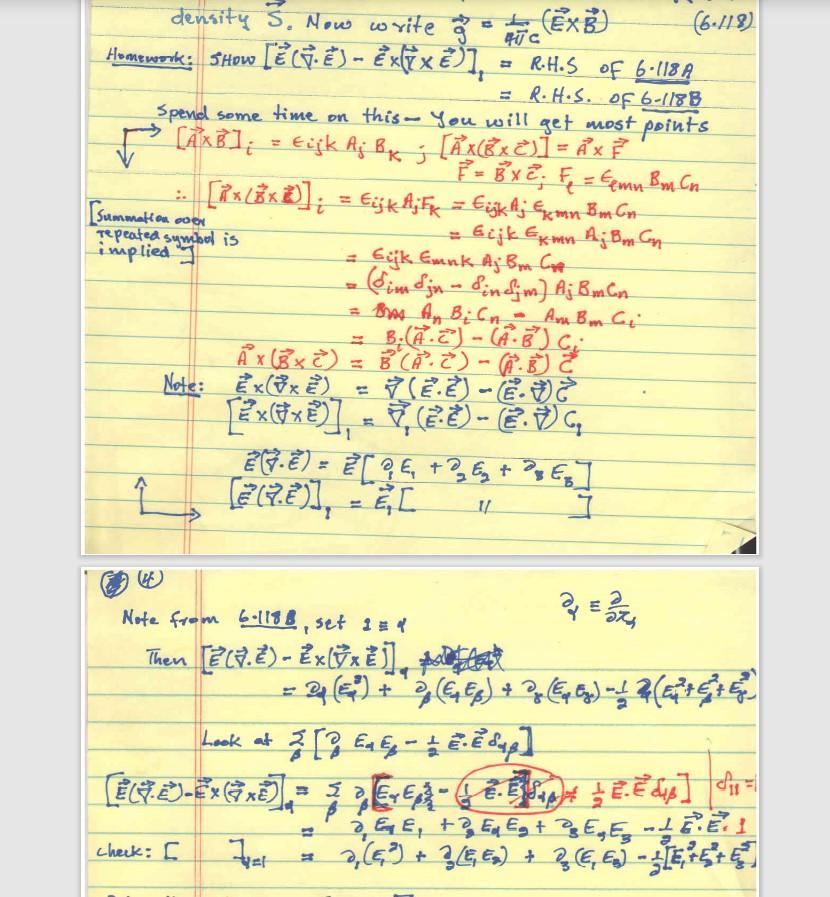 density S⃗. Now write g⃗ = 1/4πc (E⃗×B⃗) (6.118)
Homework: SHOW [E⃗(∇⃗.E⃗) - E⃗×(∇⃗×E⃗)]₁ = R.H.S OF 6.118A
= R.H.S. OF 6-118B
Spend some time on this— You will get most points
[A⃗×B⃗]i = Eijk Aj BK ; [A⃗×(B⃗×C⃗)] = A⃗×F⃗
F⃗ = B⃗×C⃗; Fℓ = Eℓmn Bm Cn
∴ [A⃗×(B⃗×C⃗)]i = Eijk AjFK = EijkAj EKmn BmCn
[Summation over
repeated symbol is
implied]
= Eijk EKmn AjBm Cn
= Eijk Emnk AjBm Cn
= (δim δjn - δin δjm) Aj BmCn
= An Bi Cn - Am Bm Ci
= Bi(A⃗.C⃗) - (A⃗.B⃗) Ci
A⃗×(B⃗×C⃗) = B⃗(A⃗.C⃗) - (A⃗.B⃗) C⃗
Note: E⃗×(∇⃗×E⃗) = ∇⃗(E⃗.E⃗) - (E⃗.∇⃗)C⃗
[E⃗×(∇⃗×E⃗)]₁ = ∇⃗₁(E⃗.E⃗) - (E⃗.∇⃗) C₁
E⃗(∇⃗.E⃗) = E⃗[∂₁E₁ + ∂₂E₂ + ∂₃E₃]
[E⃗(∇⃗.E⃗)]₁ = E⃗₁[ 〃 ]
(4)
Note from 6.118B, set 1 ≡ α ∂α ≡ ∂/∂xα
Then [E⃗(∇⃗.E⃗) - E⃗×(∇⃗×E⃗)]α
= ∂α(Eα²) + ∂β(EαEβ) + ∂γ(EαEγ) - 1/2 ∂α(Eα²+Eβ²+Eγ²)
Look at Σβ [∂β EαEβ - 1/2 E⃗.E⃗ δαβ]
[E⃗(∇⃗.E⃗)-E⃗×(∇⃗×E⃗)]α = Σβ ∂β[EαEβ - 1/2 E⃗.E⃗]δαβ 1/2 E⃗.E⃗ δαβ] δ11 =
= ∂₁EαE₁ + ∂₂EαE₂ + ∂₃EαE₃ - 1/2 E⃗.E⃗.1
check: [ ]α=1 = ∂₁(E₁²) + ∂₂(E₁E₂) + ∂₃(E₁E₃) - 1/2[E₁²+E₂²+E₃²]